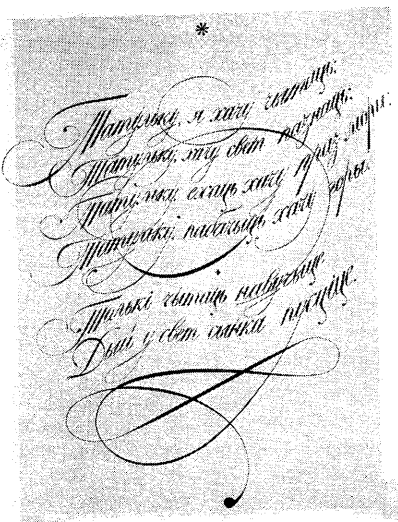 *
Татульку, я хачу чытаць.
Татульку, хачу свет пазнаць.
Татульку, ехаць хачу праз моры.
Татулька, пабачыць хачу горы.
Толькі чытаць навучыце
Ды ў свет сынка пусціце.